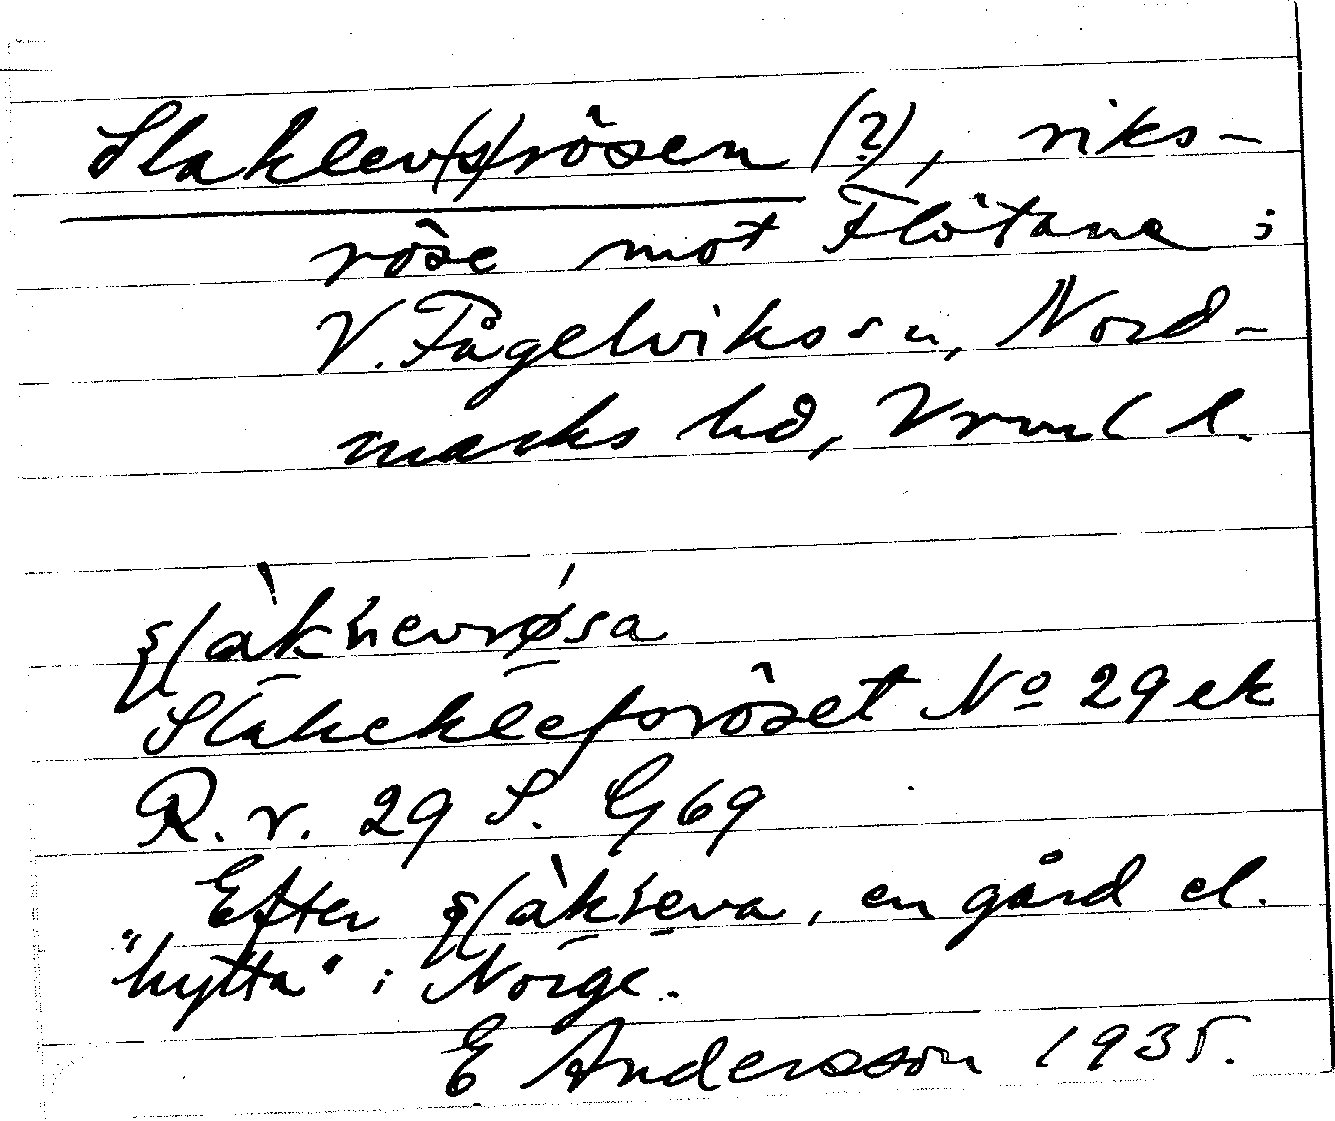 Slaklev(s)rösen (?), riks-
röse mot Flötane i
V. Fågelvikssn, Nord-
marks hd, Vrml l.
Slakeklefsröset No 29 ek
R. r. 29 S. G 69
Efter en gård el.
"hytta" i Norge.
E Andersson 1935.